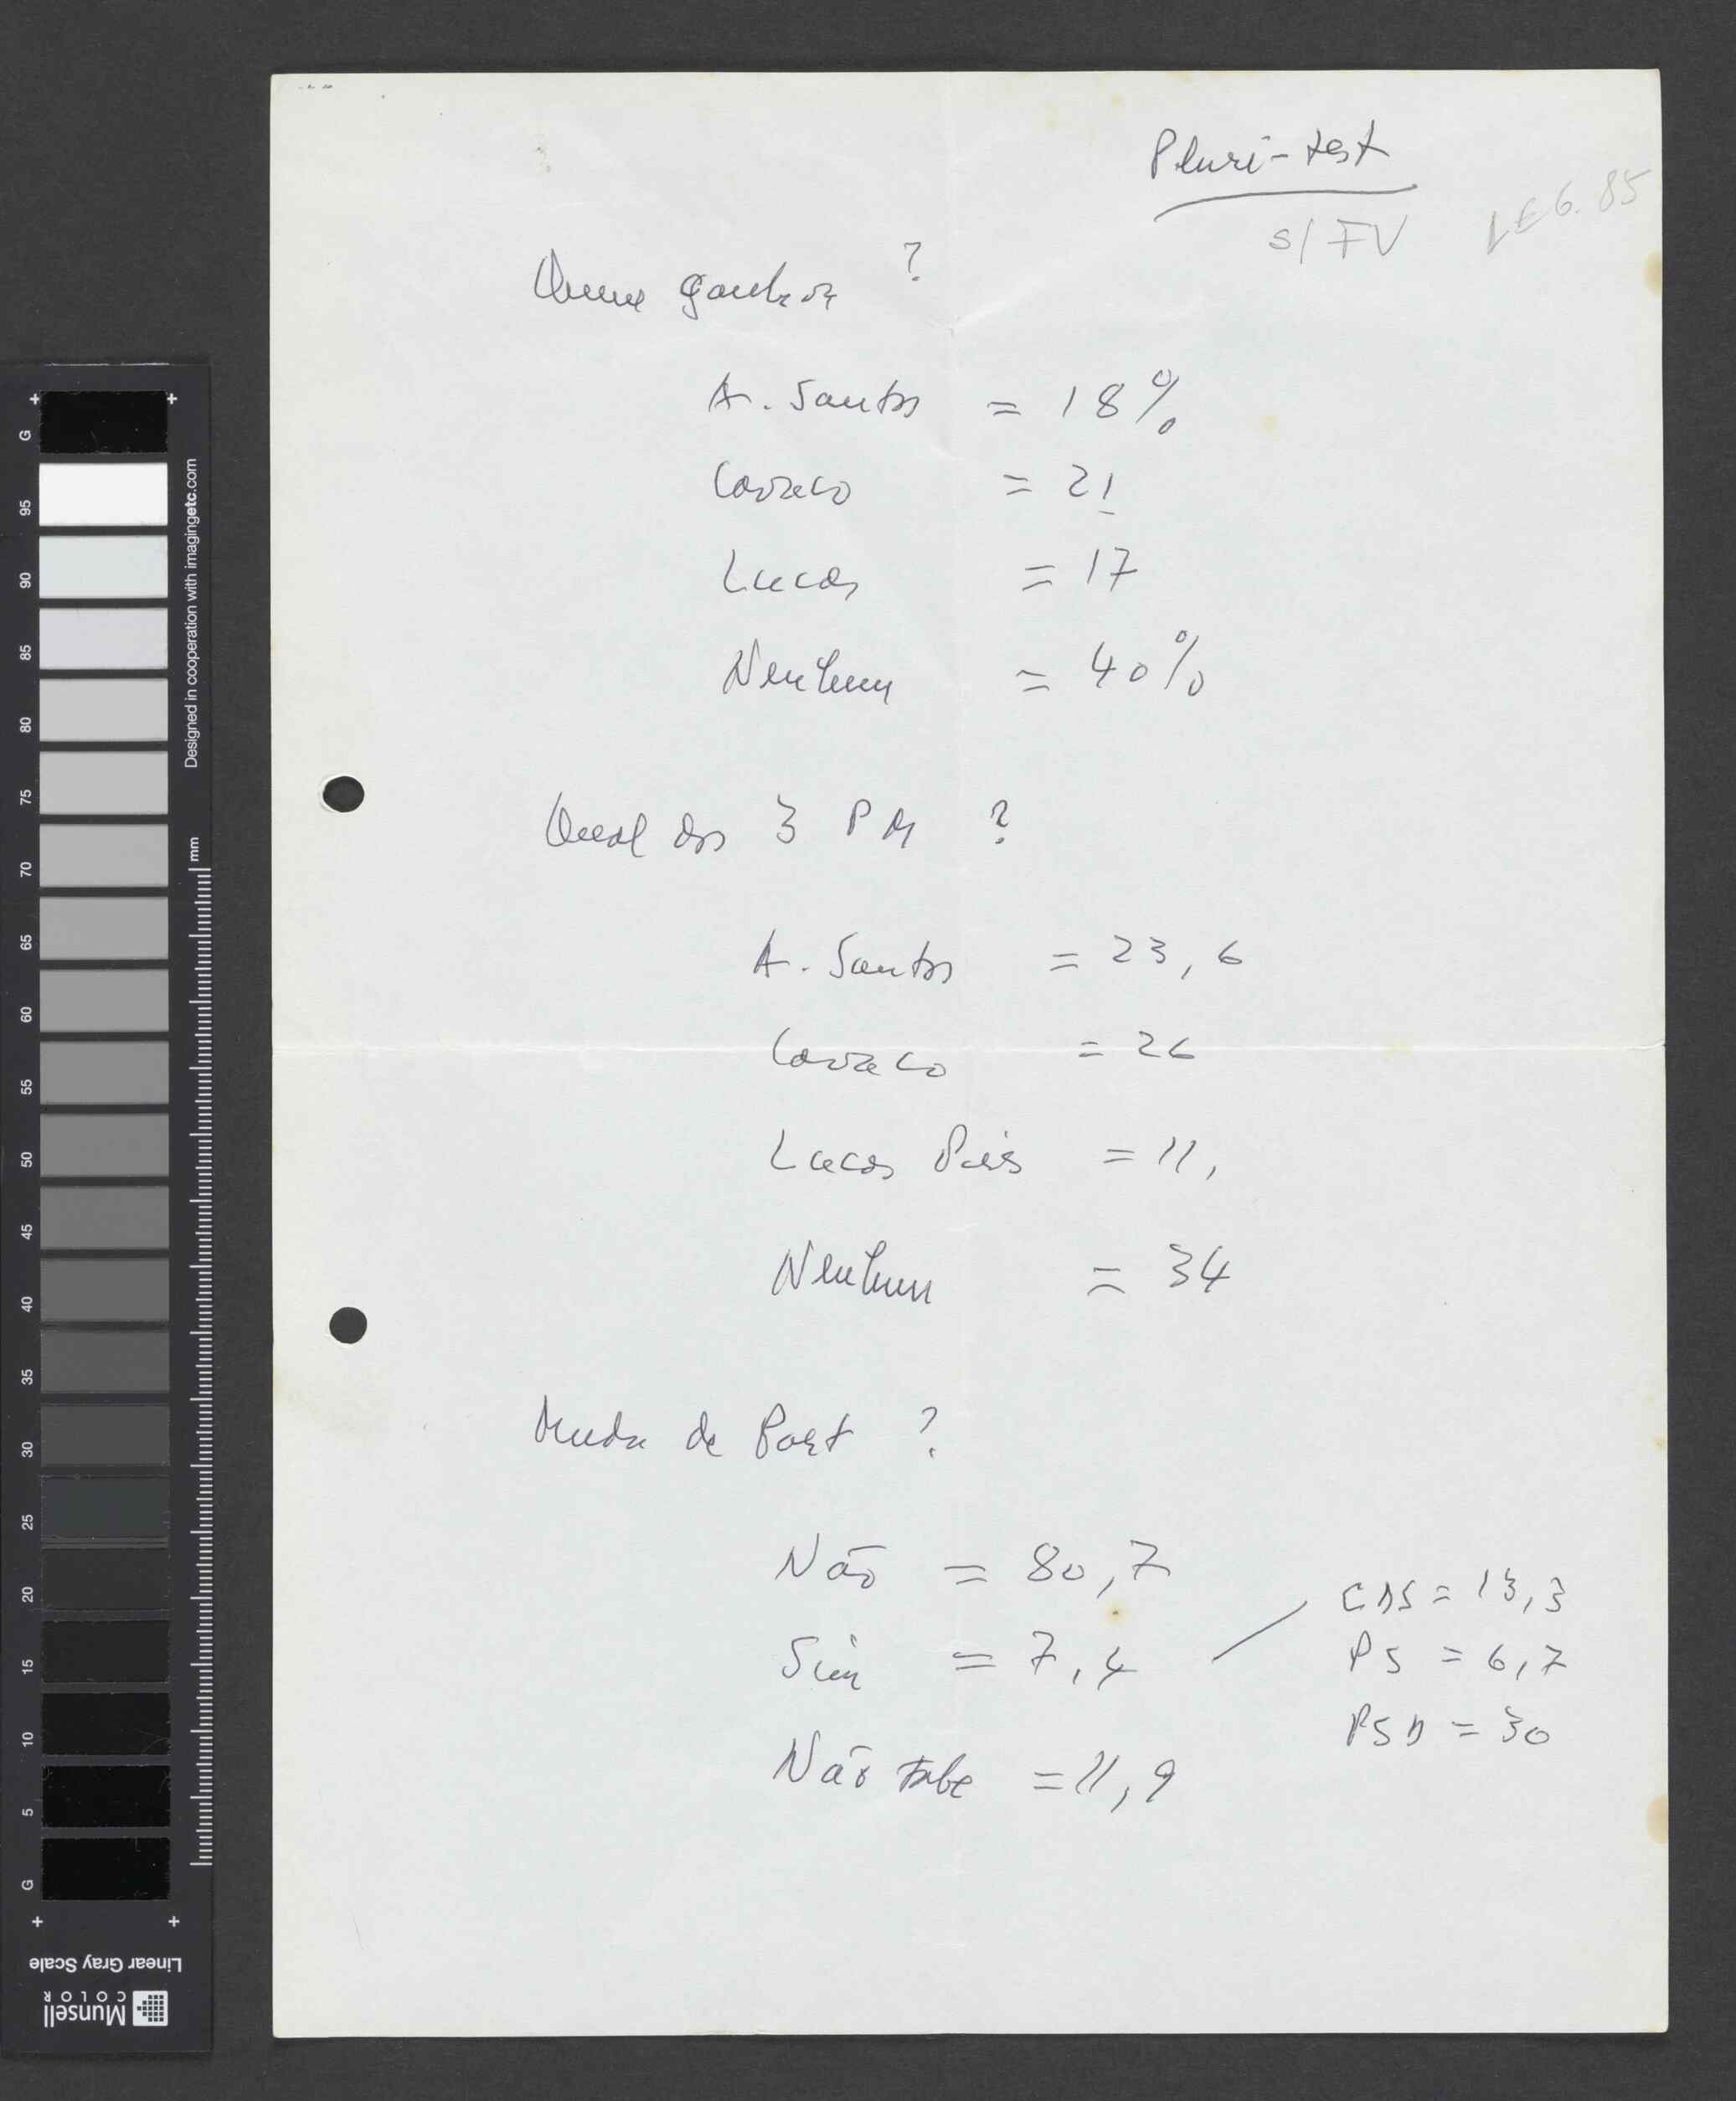 Pluri-test
s/ FV
6.85
Quem ganhou ?
A. Santos = 18%
Cavaco = 21
Lucas = 17
Nenhum = 40%
Qual dos 3 PM ?
A. Santos = 23,6
Cavaco = 26
Lucas Pires = 11,
Nenhum = 34
Muda de Part ?
Não = 80,7
Sim = 7,4
Não sabe = 11,9
CDS = 13,3
PS = 6,7
PSD = 30
G
95
90
85
80
75
70
65
60
55
50
45
40
35
30
25
20
15
10
5
G
Designed in cooperation with imagingetc.com
mm
Linear Gray Scale
Munsell
COLOR